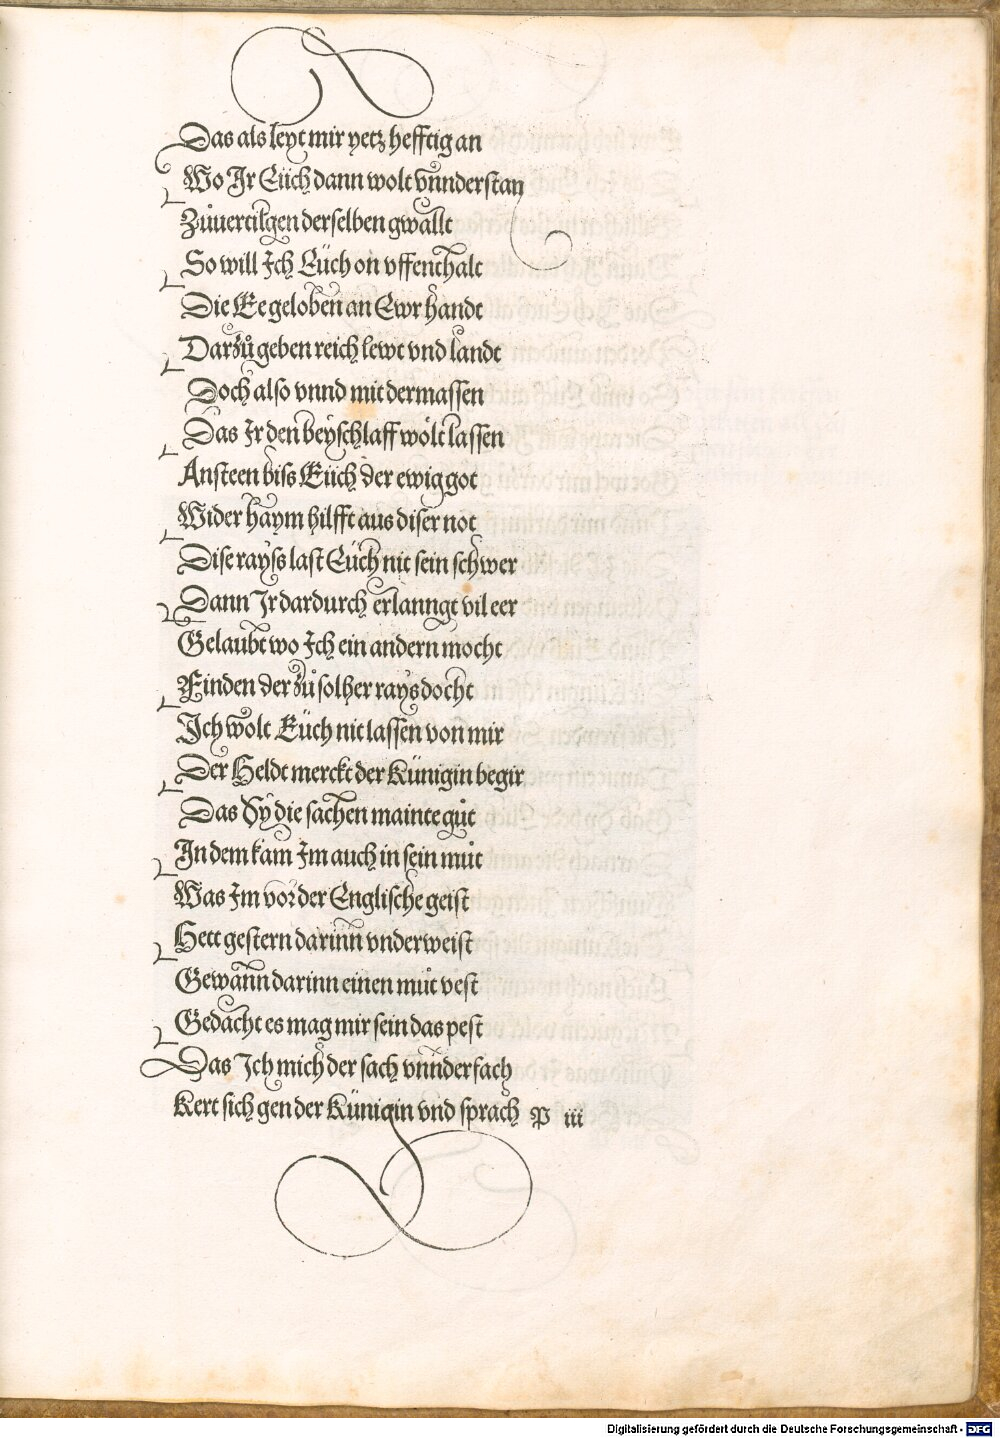 Das als leyt mir yetz hefftig an
Wo Ir Eüch dann wolt vnnderstan
Zůuertilgen derselben gwallt
So will Ich Eüch on vffenthalt
Die Ee geloben an Ewr handt
Darzů geben reich lewt vnd landt
Doch also vnnd mit dermassen
Das Ir den beyschlaff wölt lassen
Ansteen biss Eüch der ewig got
Wider haym hilfft aus diser not
Dise rayss last Eüch nit sein schwer
Dann Ir dardurch erlanngt vil eer
Gelaubt wo Ich ein andern mocht
Finden der zů solher rays docht
Ich wolt Eüch nit lassen von mir
Der Heldt merckt der Künigin begir
Das Sy die sachen mainte gůt
In dem kam Im auch in sein můt
Was Im vor der Englische geist
Hett gestern darinn vnderweist
Gewann darinn einen můt vest
Gedacht es mag mir sein das pest
Das Ich mich der sach vnnderfach
Kert sich gen der Künigin vnd sprach P iii
Digitalisierung gefördert durch die Deutsche Forschungsgemeinschaft - DFG